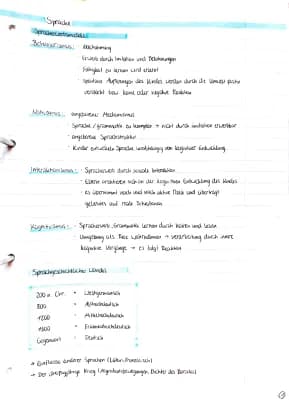 Sprache
Spracherwerbsmodelle
Behaviorismus: Nachahmung
· Erwerb durch Imitation und Belohnungen
· Fähigkeit zu lernen wird ererbt
· spontane Äußerungen des Kindes werden durch die Umwelt positiv
verstärkt bzw. keine oder negative Reaktion
Nativismus: angeborener Mechanismus
· Sprache/Grammatik zu komplex → nicht durch Imitation erwerbbar
· angeborene Sprachstruktur
· Kinder entwickeln Sprache unabhängig von kognitiver Entwicklung
Interaktionismus: · Spracherwerb durch soziale Interaktion
· Eltern orientieren sich an der kognitiven Entwicklung des Kindes
· es übernimmt nach und nach aktive Rolle und überträgt
gelerntes auf reale Situationen
Kognitivismus: · Spracherwerb, Grammatik lernen durch hören und lesen
· Umgebung als Reiz wahrnehmen → Verarbeitung durch innere
kognitive Vorgänge → es folgt Reaktion
Sprachgeschichtlicher Wandel
200 n. Chr. Westgermanisch
800 Althochdeutsch
1200 Mittelhochdeutsch
1500 Frühneuhochdeutsch
Gegenwart Deutsch
→ Einflüsse anderer Sprachen (Latein, Französisch)
→ Der dreißigjährige Krieg